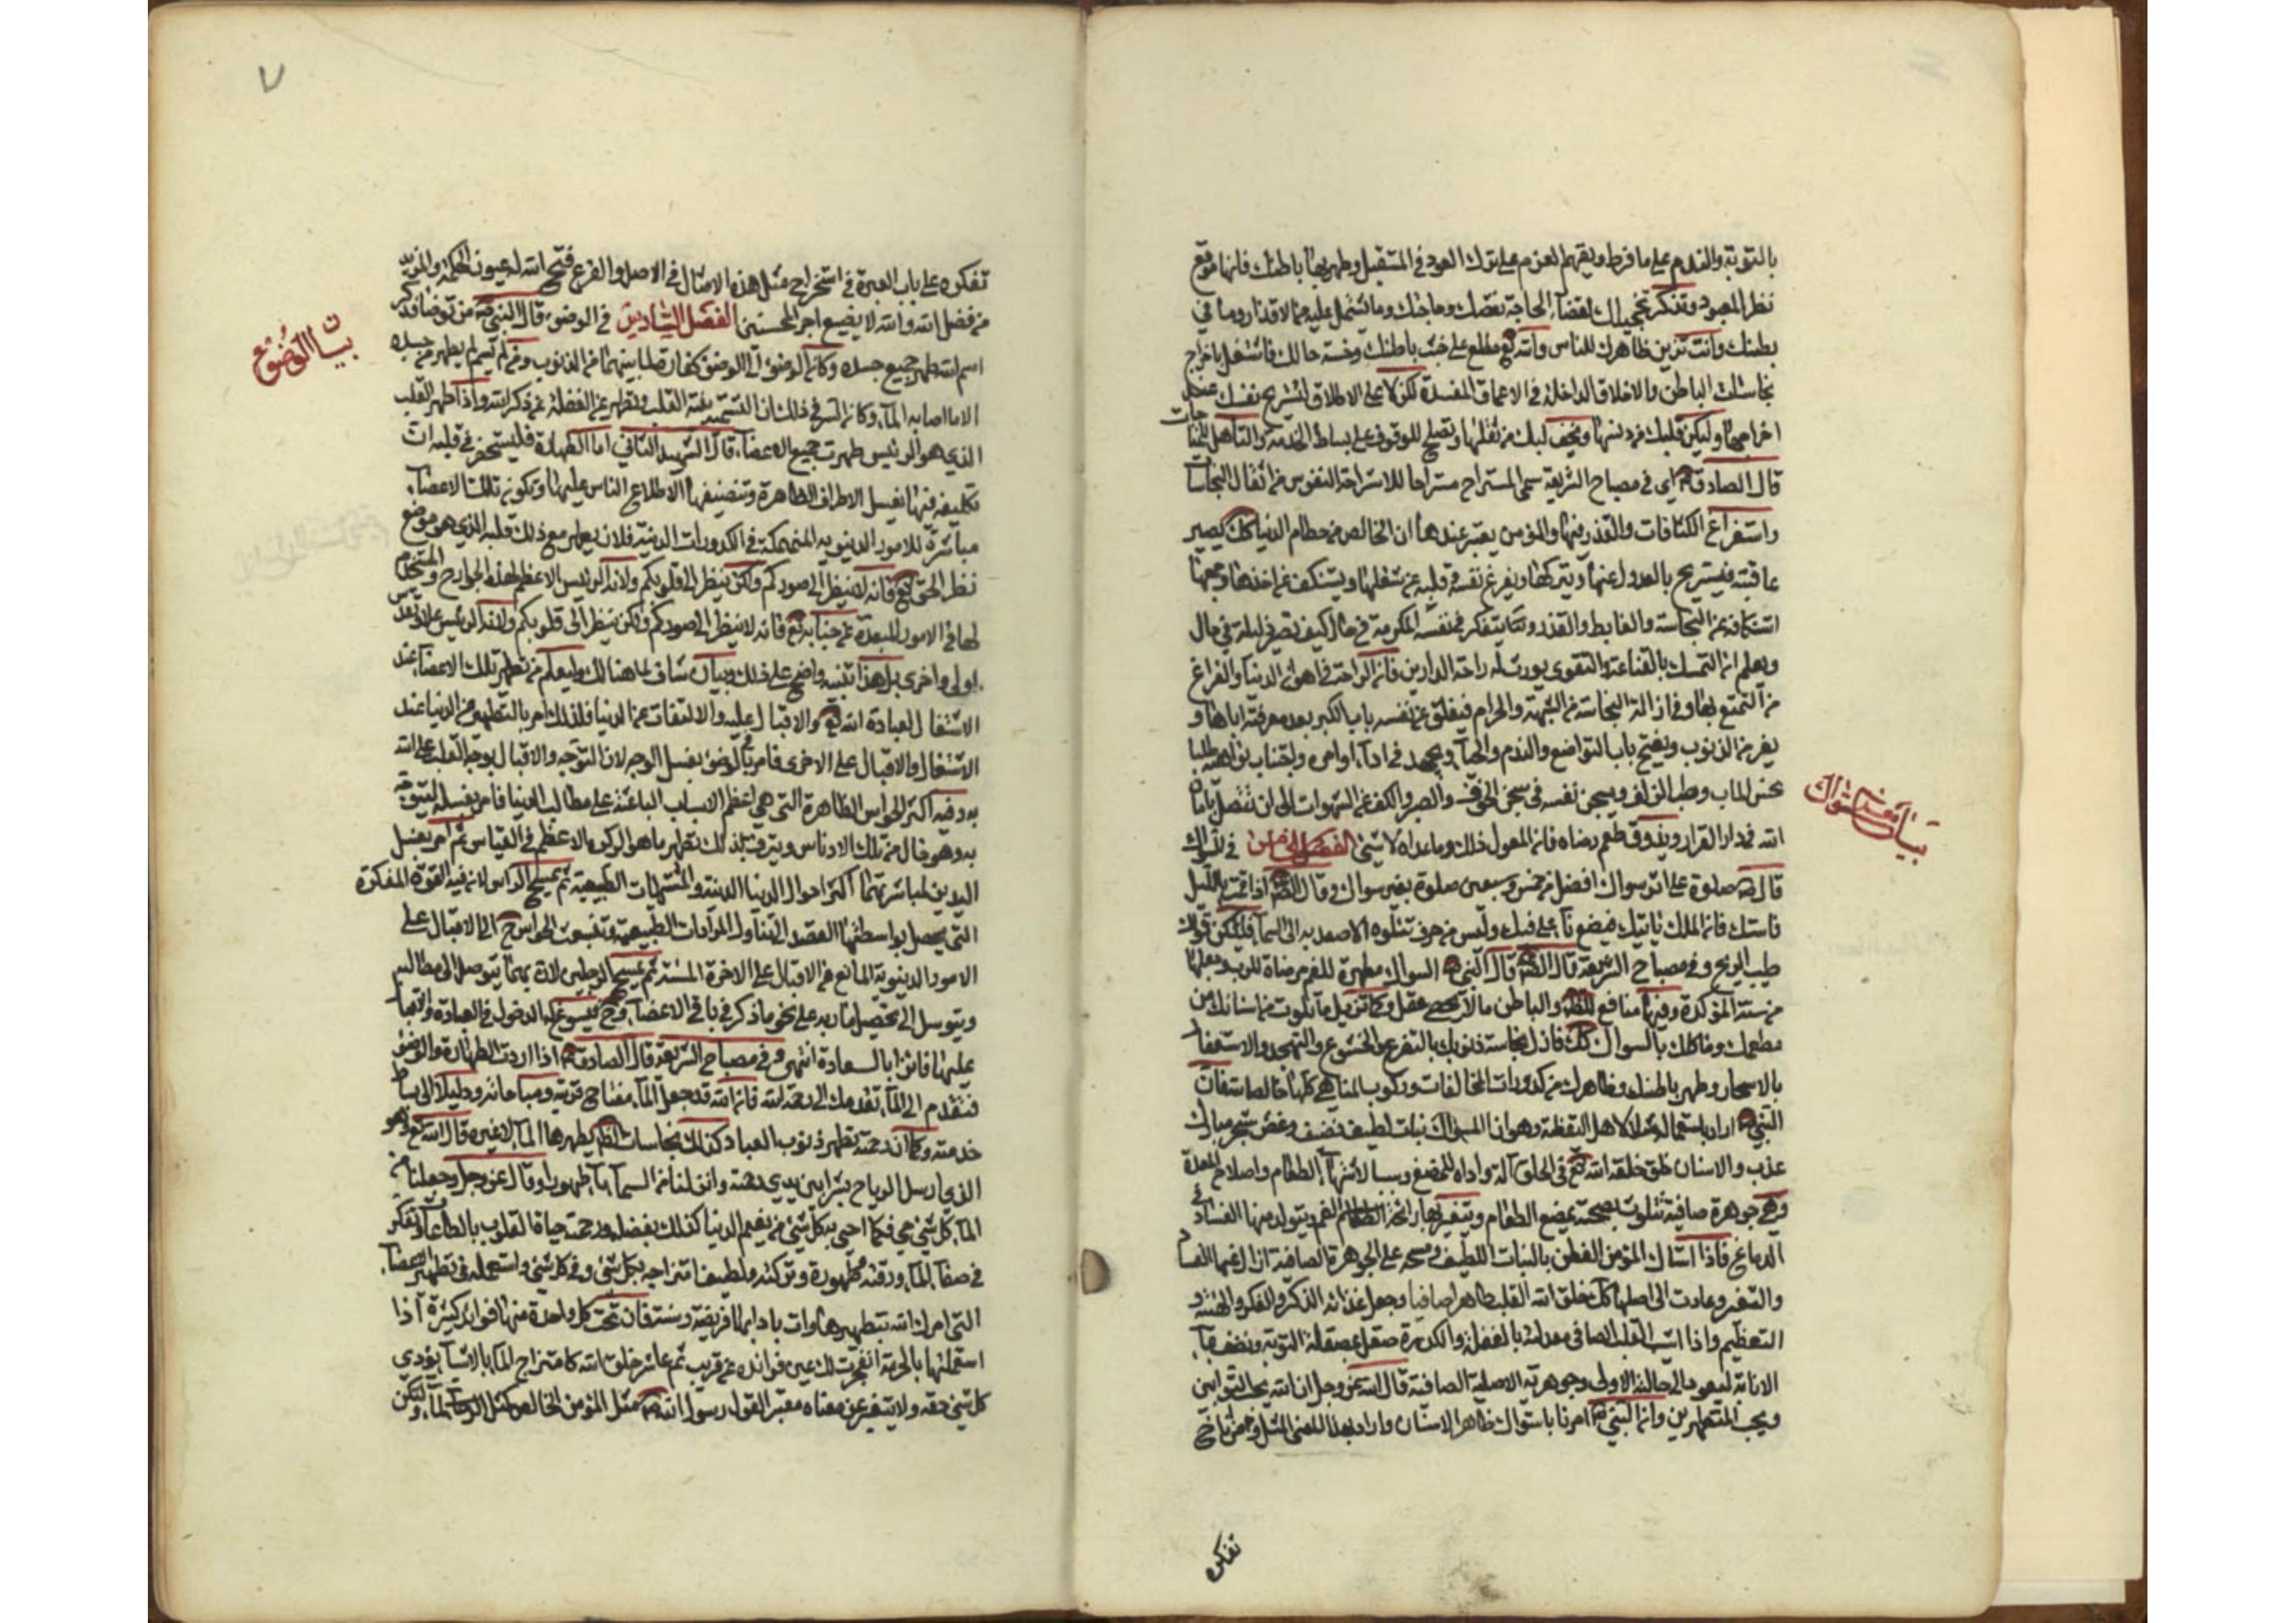 بالتوبة والندم على ما فرط وتقيم العزم على ترك العود في المستقبل وطهر بهما باطنك فانها موقع
نظر المعبود وتذكر تخجيلك لقضاء الحاجة نقصك وحاجتك وما تشتمل عليه من الاقذار وما في
بطنك وانت تزين ظاهرك للناس والله تع مطلع على خبث باطنك وخسة حالك فاشتغل باخراج
نجاسات الباطن والاخلاق الداخلة في الاعماق المفسدة لك على الاطلاق لتستريح نفسك عند
اخراجها وليكن قلبك من دنسها ويخف لبك من ثقلها وتصلح للوقوف على بساط الخدمة والتأهل للمناجات
قال الصادق ع اي في مصباح الشريعة سمي المستراح مستراحا للاستراحة النفوس من اثقال النجاسات
واستفراغ الكثافات والقذر فيها والمؤمن يعتبر عندها ان الخالص من حطام الدنيا كك يصير
عاقبته فيستريح بالعدول عنها ويتركها ويفرغ نفسه وقلبه عن شغلها ويستنكف عن اخذها وجمعها
استنكافه عن النجاسة والغايط والقذر ويتفكر في نفسه المكرمة في حال كيف تصير ذليلة في حال
ويعلم ان التمسك بالقناعة والتقوى يورث له راحة الدارين فان الراحة في اهون الدنيا والفراغ
من التمتع بها وفي ازالة النجاسة من الشبهة والحرام فيغلق عن نفسه باب الكبر بعد معرفته اياها و
يفر من الذنوب ويفتح باب التواضع والندم والحياء ويجتهد في اداء اوامره واجتناب نواهيه طلبا
لحسن المآب وطيب الزلف ويسجن نفسه في سجن الخوف والصبر والكف عن الشهوات الى ان تتصل بامان
الله في دار القرار ويذوق طعم رضاه فان المعول ذلك وما عداه لا شيء الفصل الخامس في السواك
قال ص صلوة على اثر سواك افضل من خمس وسبعين صلوة بغير سواك وقال الص اذا قمت بالليل
فاستك فان الملك ياتيك فيضع فاه على فيك وليس من حرف تتلوه الا صعد به الى السماء فليكن فوك
طيب الريح وفي مصباح الشريعة قال الص قال النبي ص السواك مطهرة للفم مرضاة للرب وجعلها
من سنته المؤكدة وفيها منافع للظ والباطن ما لا يحصى لمن عقل وكما تزيل ما تلوث من اسنانك من
مطعمك وماكلك بالسواك كك فازل نجاسة ذنوبك بالتضرع والخشوع والتهجد والاستغفار
بالاسحار وطهر باطنك وظاهرك من كدورات المخالفات وركوب المناهي كلها خالصا لله فان
النبي ص اراد باستعماله مثلا لاهل اليقظة وهو ان المسواك نبات لطيف نضيف وغصن شجر مبارك
عذب والاسنان خلق خلقه الله تع في الحلق آلة واداة للمضغ وسببا لاشتهاء الطعام واصلاح المعدة
وهي جوهرة صافية تتلوث بصحبة مضغ الطعام وتتغير بها رائحة الفم ويتولد منها الفساد في
الدماغ فاذا استاك المؤمن الفطن بالنبات اللطيف ومسحه على الجوهرة الصافية ازال عنها الفساد
والتغير وعادت الى اصلها كك خلق الله القلب طاهرا صافيا وجعل غذائه الذكر والفكر والهيبة و
التعظيم واذا شيب القلب الصافي معدنه بالغفلة والكدر صقل بمصقلة التوبة ونظف بماء
الانابة ليعود الى حالته الاولى وجوهرته الاصلية الصافية قال الله عز وجل ان الله يحب التوابين
ويحب المتطهرين وان النبي ص امرنا باستواك ظاهر الاسنان واراد بهذا المعنى المثل ومن اناخ
تفكره
بيان السواك
تفكره على باب العبرة في استخراج مثل هذه الامثال في الاصل والفرع فتح الله له عيون الحكمة والمزيد
من فضل الله والله لا يضيع اجر المحسنين الفصل السادس في الوضوء قال النبي ص من توضا فذكر
اسم الله طهر جميع جسده وكان الوضوء الى الوضوء كفارة لما بينهما من الذنوب ومن لم يسم لم يطهر من جسده
الا ما اصابه الماء وكان السر في ذلك ان التسمية ينبه القلب وتطهره عن الغفلة عن ذكر الله واذا طهر القلب
الذي هو الرئيس طهرت جميع الاعضاء قال الشهيد الثاني اما الطهارة فليستحضر في قلبه ان
تكليفه فيها بغسل الاطراف الظاهرة وتنضيفها لاطلاع الناس عليها ولكون تلك الاعضاء
مباشرة للامور الدنيوية المنهمكة في الكدورات الدنية فلان يطهر مع ذلك قلبه الذي هو موضع
نظر الحق تع فانه لا ينظر الى صوركم ولكن ينظر الى قلوبكم ولانه الرئيس الاعظم لهذه الجوارح والمستخدم
لها في الامور المبعدة عن جنابه تع فانه لا ينظر الى صوركم ولكن ينظر الى قلوبكم ولانه الرئيس
اولى واحرى بل هذا تنبيه واضح على ذلك وبيان شاف لما هنالك وليعلم من تطهير تلك الاعضاء عند
الاشتغال بعبادة الله تع والاقبال عليه والالتفات عن الدنيا فلذلك امر بالتطهير من الدنيا عند
الاشتغال والاقبال على الاخرى فامر في الوضوء بغسل الوجه لان التوجه والاقبال بوجه القلب على الله
به وفيه اكثر الحواس الظاهرة التي هي اعظم الاسباب الباعثة على مطالب الدنيا فامر بغسله ليتوجه
به وهو خال من تلك الادناس ويترقى بذلك الى تطهير ما هو الركن الاعظم في القياس ثم امر بغسل
اليدين لمباشرتهما اكثر احوال الدنيا الدنية والمشتهيات الطبيعية ثم بمسح الراس لان فيه القوة المفكرة
التي يحصل بواسطتها القصد الى تناول المرادات الطبيعية وتنبعث الحواس ح الى الاقبال على
الامور الدنيوية المانع من الاقبال على الاخرة ثم بمسح الرجلين لان بهما يتوصل الى مطالبه
ويتوسل الى تحصيل ماربه على نحو ما ذكر في باقي الاعضاء وح فيسوغ له الدخول في العبادة والاقبال
عليها فائزا بالسعادة انتهى وفي مصباح الشريعة قال الصادق ع اذا اردت الطهارة والوضوء
فتقدم الى الماء تقدمك الى رحمة الله فان الله قد جعل الماء مفتاح قربته ومناجاته ودليلا الى بساط
خدمته وكما ان رحمته تطهر ذنوب العباد كذلك نجاسات الظ يطهرها الماء لا غيره قال الله تع وهو
الذي ارسل الرياح بشرا بين يدي رحمته وانزلنا من السماء ماء طهورا وقال عز وجل وجعلنا من
الماء كل شيء حي فكما احيى به كل شيء من نعيم الدنيا كذلك بفضله ورحمته حياة القلوب بالطاعات وتفكر
في صفاء الماء ورقته وطهورة وبركته ولطيف امتزاجه بكل شيء وفي كل شيء واستعمله في تطهير الاعضاء
التي امرك الله بتطهيرها وات بادابها فرايضه وسننه فان تحت كل واحدة منها فوائد كثيرة اذا
استعملتها بالحرمة انفجرت لك عين فوائده عن قريب ثم عاشر خلق الله كامتزاج الماء بالاشياء يؤدي
كل شيء حقه ولا يتغير عن معناه معتبرا لقول رسول الله ص مثل المؤمن الخالص كمثل الماء وليكن
بيان الوضوء
٧